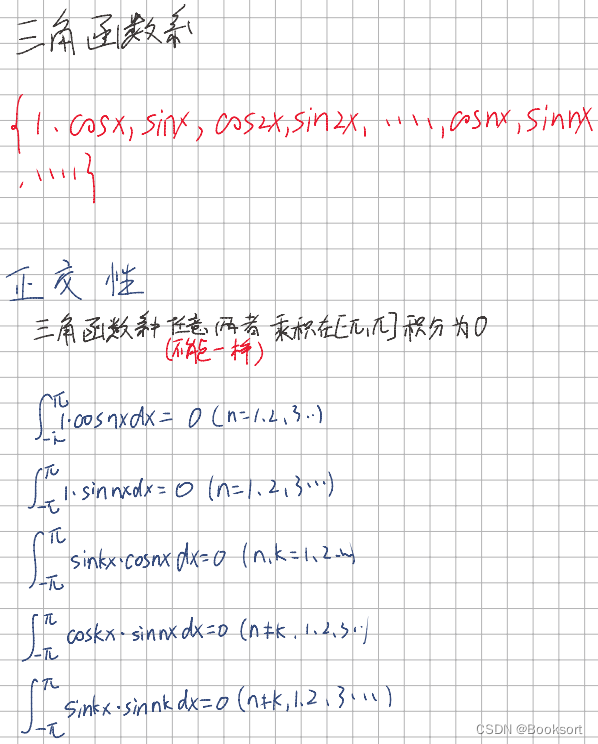 三角函数系
{1. cosx, sinx, cos2x, sin2x, ····, cosnx, sinnx
, ····}
正交性
三角函数系中任意两者乘积在[-π,π]积分为0
(不能一样)
∫_{-π}^{π} 1·cosnxdx = 0 (n=1.2,3··)
∫_{-π}^{π} 1·sinnxdx = 0 (n=1.2,3···)
∫_{-π}^{π} sinkx·cosnx dx=0 (n,k=1,2···)
∫_{-π}^{π} coskx·sinnx dx=0 (n≠k, 1.2,3··)
∫_{-π}^{π} sinkx·sinnk dx=0 (n≠k,1.2,3···)
CSDN @Booksort